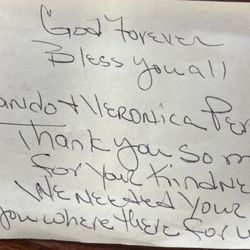 God Forever
Bless you all
ando + Veronica Per
Thank you so m
For Your Kindne
We Needed Your
you where there For u